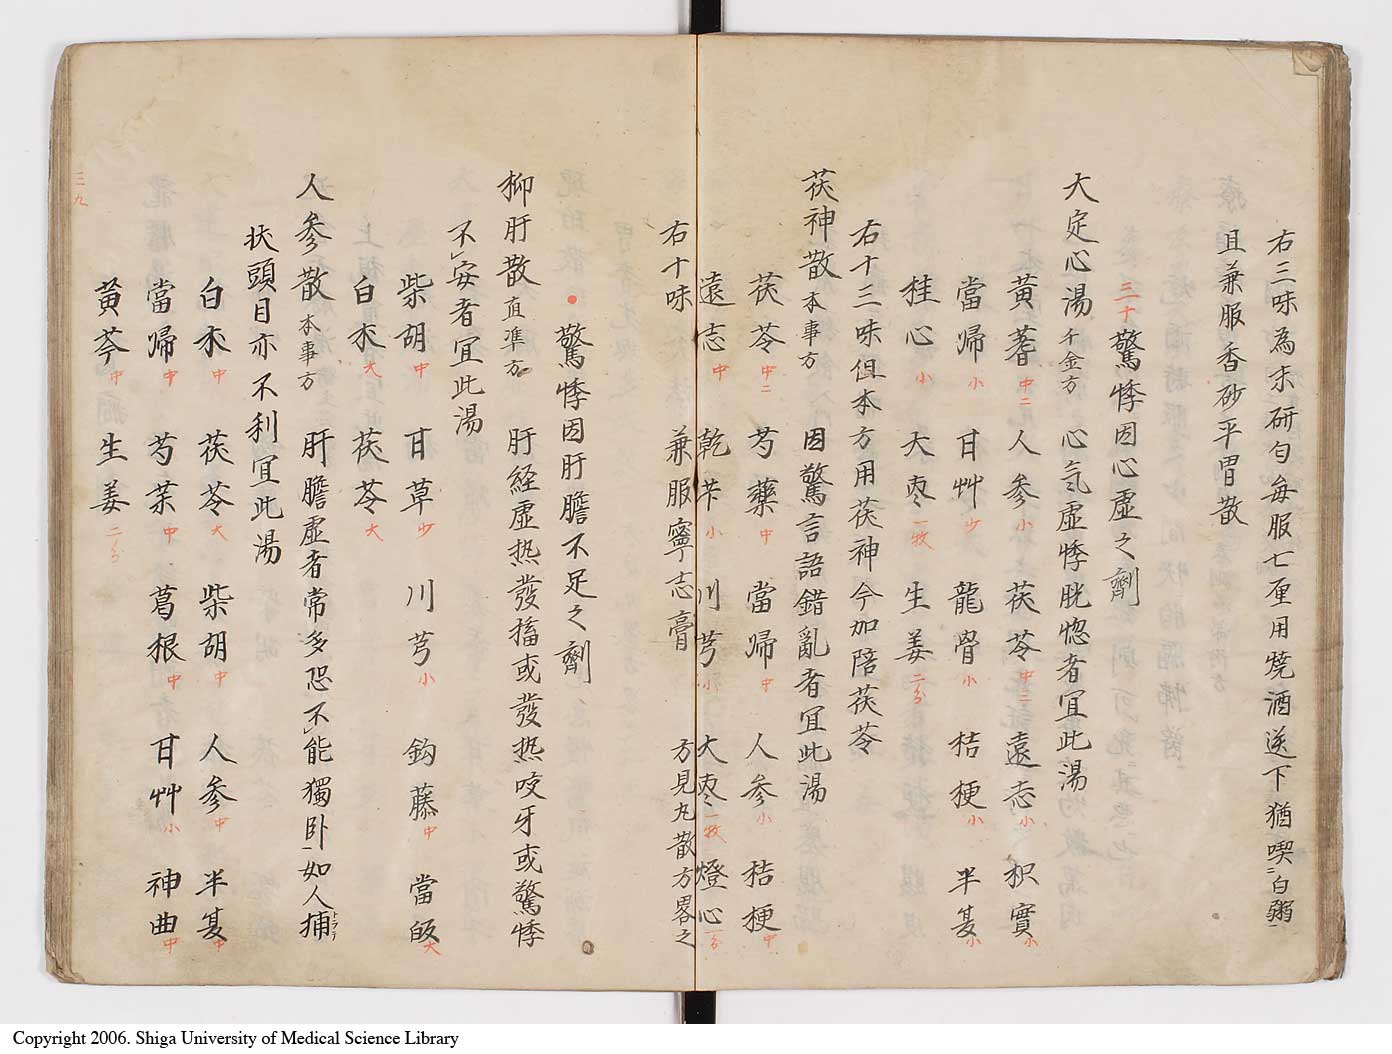 右三味為末研匀毎服七厘用燒酒送下猶喫二白粥一
且兼服香砂平胃散
三十 驚悸因心虚之劑
大定心湯千金方 心気虚悸胱惚者宜此湯
黄耆中二 人参小 茯苓中二 遠志小 枳實小
當帰小 甘艸少 龍骨小 桔梗小 半夏小
桂心小 大枣一牧 生姜二分
右十三味但本方用茯神今加陪茯苓
茯神散本事方 因驚言語錯亂者宜此湯
茯苓中二 芍藥中 當帰中 人参小 桔梗中
遠志中 乾芐小 川芎小 大枣一牧 燈心一分
右十味 兼服寧志膏 方見丸散方畧之
驚悸因肝膽不足之劑
抑肝散直準方 肝経虚热發搐或發热咬牙或驚悸
不レ安者宜此湯
柴胡中 甘草少 川芎小 鈎藤中 當皈大
白朮大 茯苓大
人参散本事方 肝膽虚者常多恐不レ能獨卧一如人捕トラフ
状頭目亦不利宜此湯
白朮中 茯苓大 柴胡中 人参中 半夏中
當帰中 芍薬中 葛根中 甘艸小 神曲中
黄芩中 生姜二分
三九
Copyright 2006. Shiga University of Medical Science Library